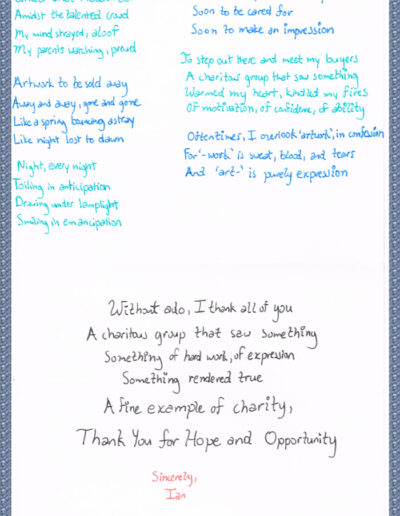 Amidst the talented crowd
My mind strayed, aloof
My parents watching, proud
Artwork to be sold away
Away and away, gone and gone
Like a spring bouncing astray
Like night lost to dawn
Night, every night
Toiling in anticipation
Drawing under lamplight
Smiling in emancipation
Soon to be cared for
Soon to make an impression
To step out there and meet my buyers
A charitous group that saw something
Warmed my heart, kindled my fires
Of motivation, of confidence, of ability
Oftentimes, I overlook 'artwork', in confusion
For '-work' is sweat, blood, and tears
And 'art-' is purely expression
Without ado, I thank all of you
A charitous group that saw something
Something of hard work, of expression
Something rendered true
A fine example of charity,
Thank You for Hope and Opportunity
Sincerely,
Ian